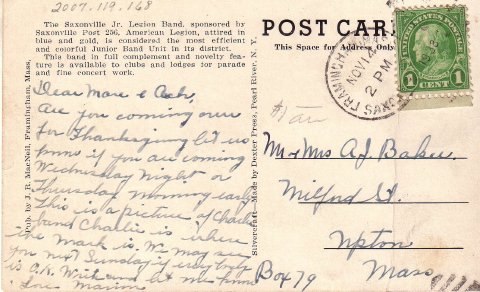 2007.119.168
The Saxonville Jr. Legion Band, sponsored by
Saxonville Post 256, American Legion, attired in
blue and gold, is considered the most efficient
and colorful Junior Band Unit in its district.
This band in full complement and novelty fea-
ture is available to clubs and lodges for parade
and fine concert work.
POST CARD
This Space for Address Only
FRAMINGHAM
NOV 14
2 PM
MASS.
UNITED STATES POSTAGE
1 CENT 1
Pub. by J. R. MacNeil, Framingham, Mass.
Silvercraft—Made by Dexter Press, Pearl River, N. Y.
Dear Marie &
Are you coming over
for Thanksgiving let us
know if you are coming
Wednesday night or
Thursday morning early
This is a picture of Charlie
band Charlie is where
the mark is. We may see
you next Sunday if everybody
is O.K. Write and let me know
Love Marion
Mr & Mrs A. J. Baker
Milford St.
Upton
Box 79 Mass